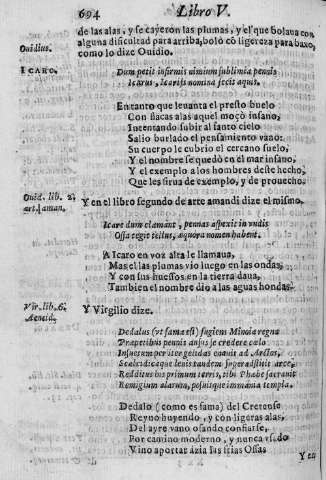 694 Libro V.
de las alas, y se cayeron las plumas, y el que bolaua con
alguna dificultad para arriba, bolò cō ligereza para baxo,
Ouidius.
como lo dize Ouidio.
ICARO.
Dum petit infirmis nimium sublimia pennis
Icarus, Icarijs nomina fecit aquis.
Entanto que leuanta el presto buelo
Con flacas alas aquel moço insano,
Intentando subir al santo cielo
Salio burlado el pensamiento vano.
Su cuerpo le cubrio el cercano suelo,
Y el nombre se quedò en el mar insano,
Y el exemplo a los hombres deste hecho,
Que les sirua de exemplo, y de prouecho.
Ouid. lib. 2.
art. aman.
Y en el libro segundo de arte amandi dize el mismo.
Icare dum clamant, pennas aspexit in vndis
Ossa tegit tellus, æquora nomen habent.
A Icaro en voz alta le llamaua,
Mas el las plumas vio luego en las ondas,
Y con sus huessos en la tierra daua,
Tambien el nombre dio a las aguas hondas.
Vir. lib. 6.
Aeneid.
Y Virgilio dize.
Dedalus (vt fama est) fugiens Minoia regna
Præpetibus pennis ausus se credere cælo
Insuetum per iter gelidas enauit ad Arctos,
Redditus his primum terris, tibi Phœbe sacrauit
Remigium alarum, posuitque immania templa.
Dedalo (como es fama) del Cretense
Reyno huyendo, y con ligeras alas,
Del ayre vano osando confiarse,
Por camino moderno, y nunca vsado
Vino aportar azia las frias Ossas
Y en